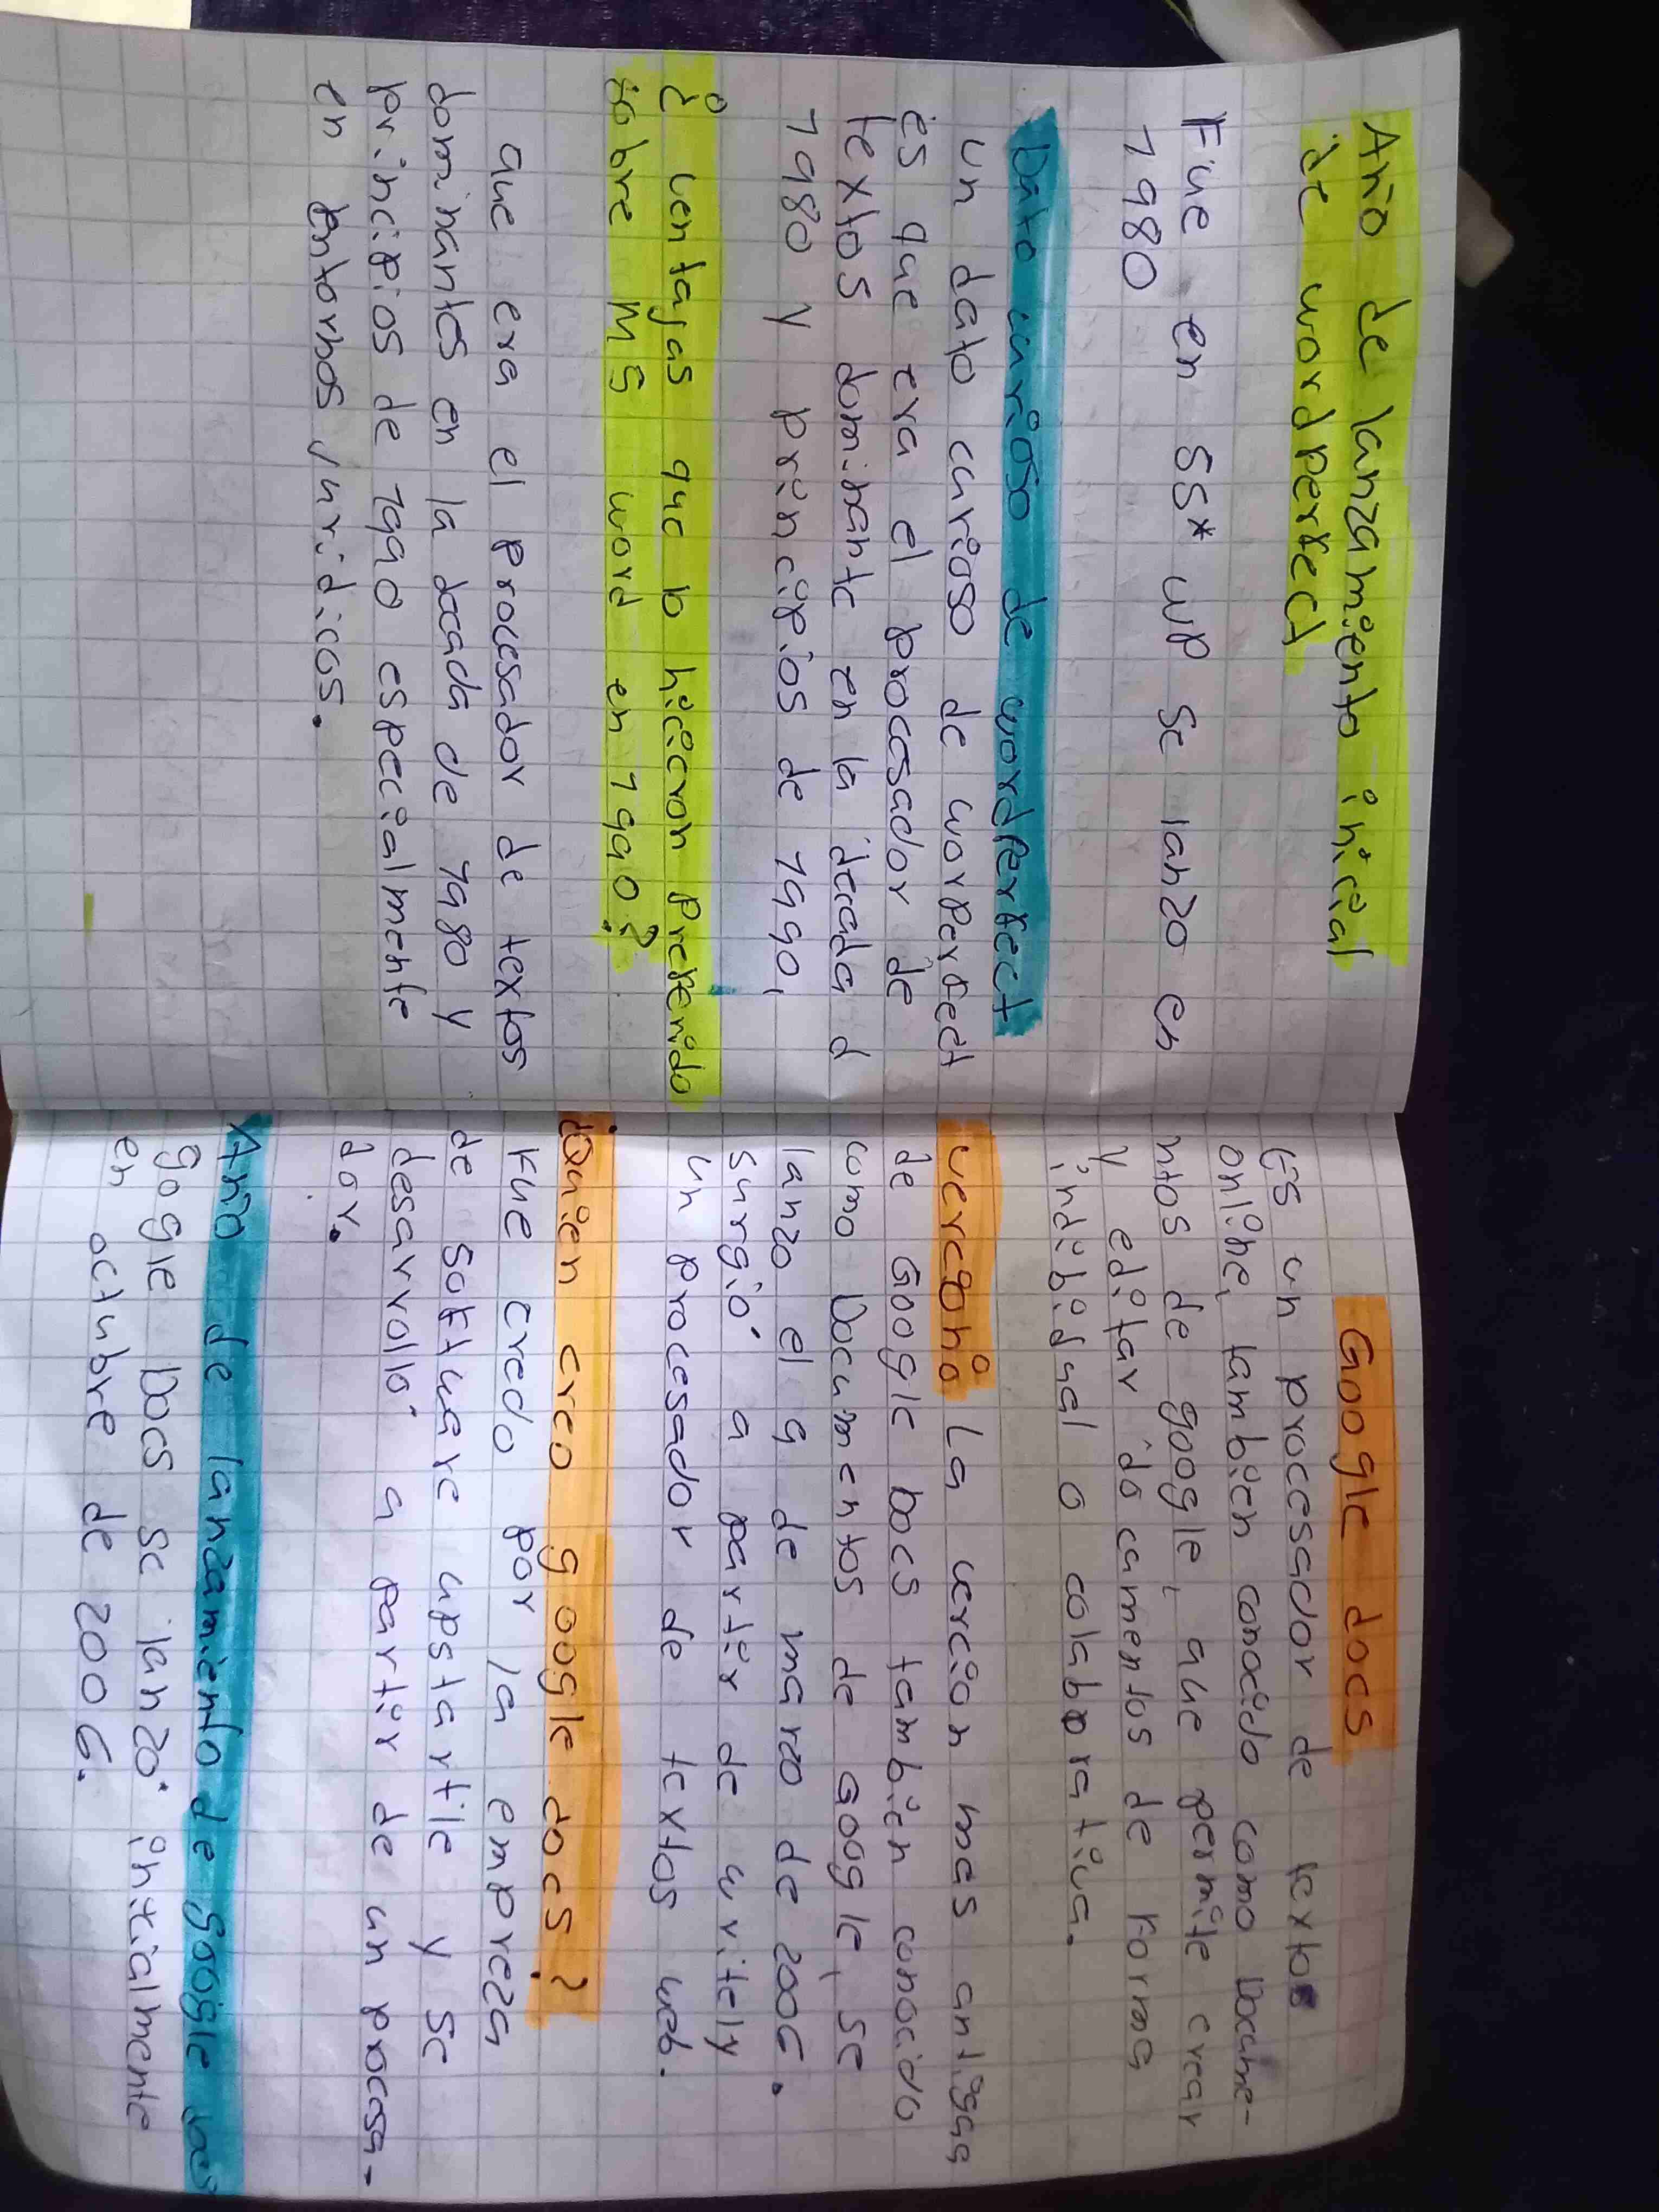 Año de lanzamiento inicial
de wordperfect
Fue en SS* WP se lanzo en
1980
Dato curioso de wordperfect
un dato curioso de worperfect
es que era el procesador de
textos dominante en la decada d
1980 y principios de 1990,
¿ ventagas que lo hicieron preferido
sobre MS word en 1990?
que era el procesador de textos
dominantes en la decada de 1980 y
principios de 1990 especialmente
en entornos juridicos.
Google docs
Es un procesador de textos
online, tambien conocido como Docume-
ntos de google, que permite crear
y editar documentos de forma
indibidual o colaborativa.
vercion La vercion mas antigua
de Google Docs tambien conocido
como Documentos de Google, se
lanzo el 9 de marzo de 2006.
surgió a partir de writely
un procesador de textos web.
¿Quien creo google docs?
Fue credo por la empreza
de software upstartle y se
desarvolló a partir de un procesa-
dor.
Año de lanzamiento de google docs
gogle Docs se lanzó initialmente
en octubre de 2006.